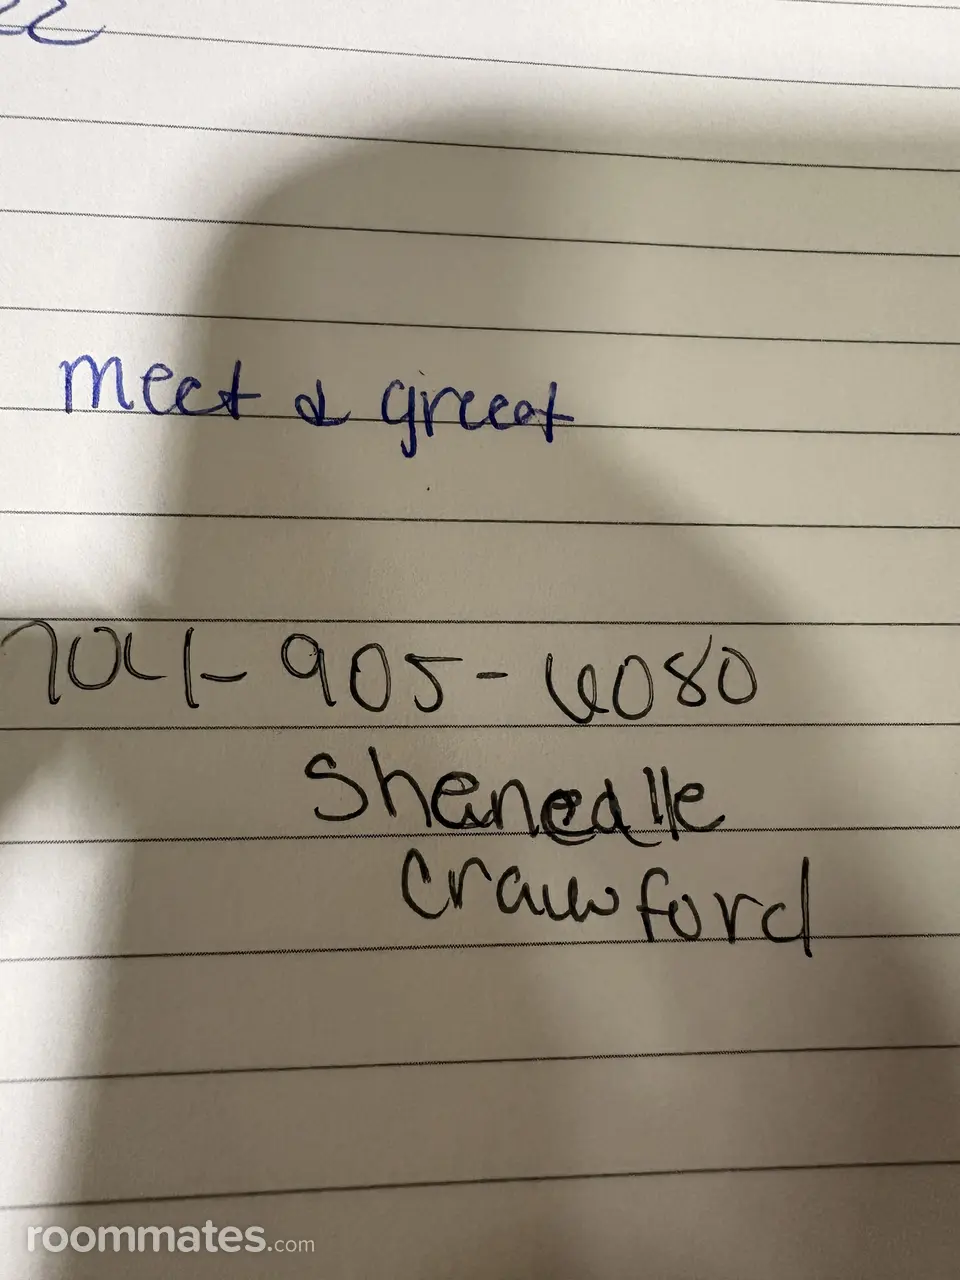 meet & greet
704-905-6080
Shenedlle
Crawford
roommates.com